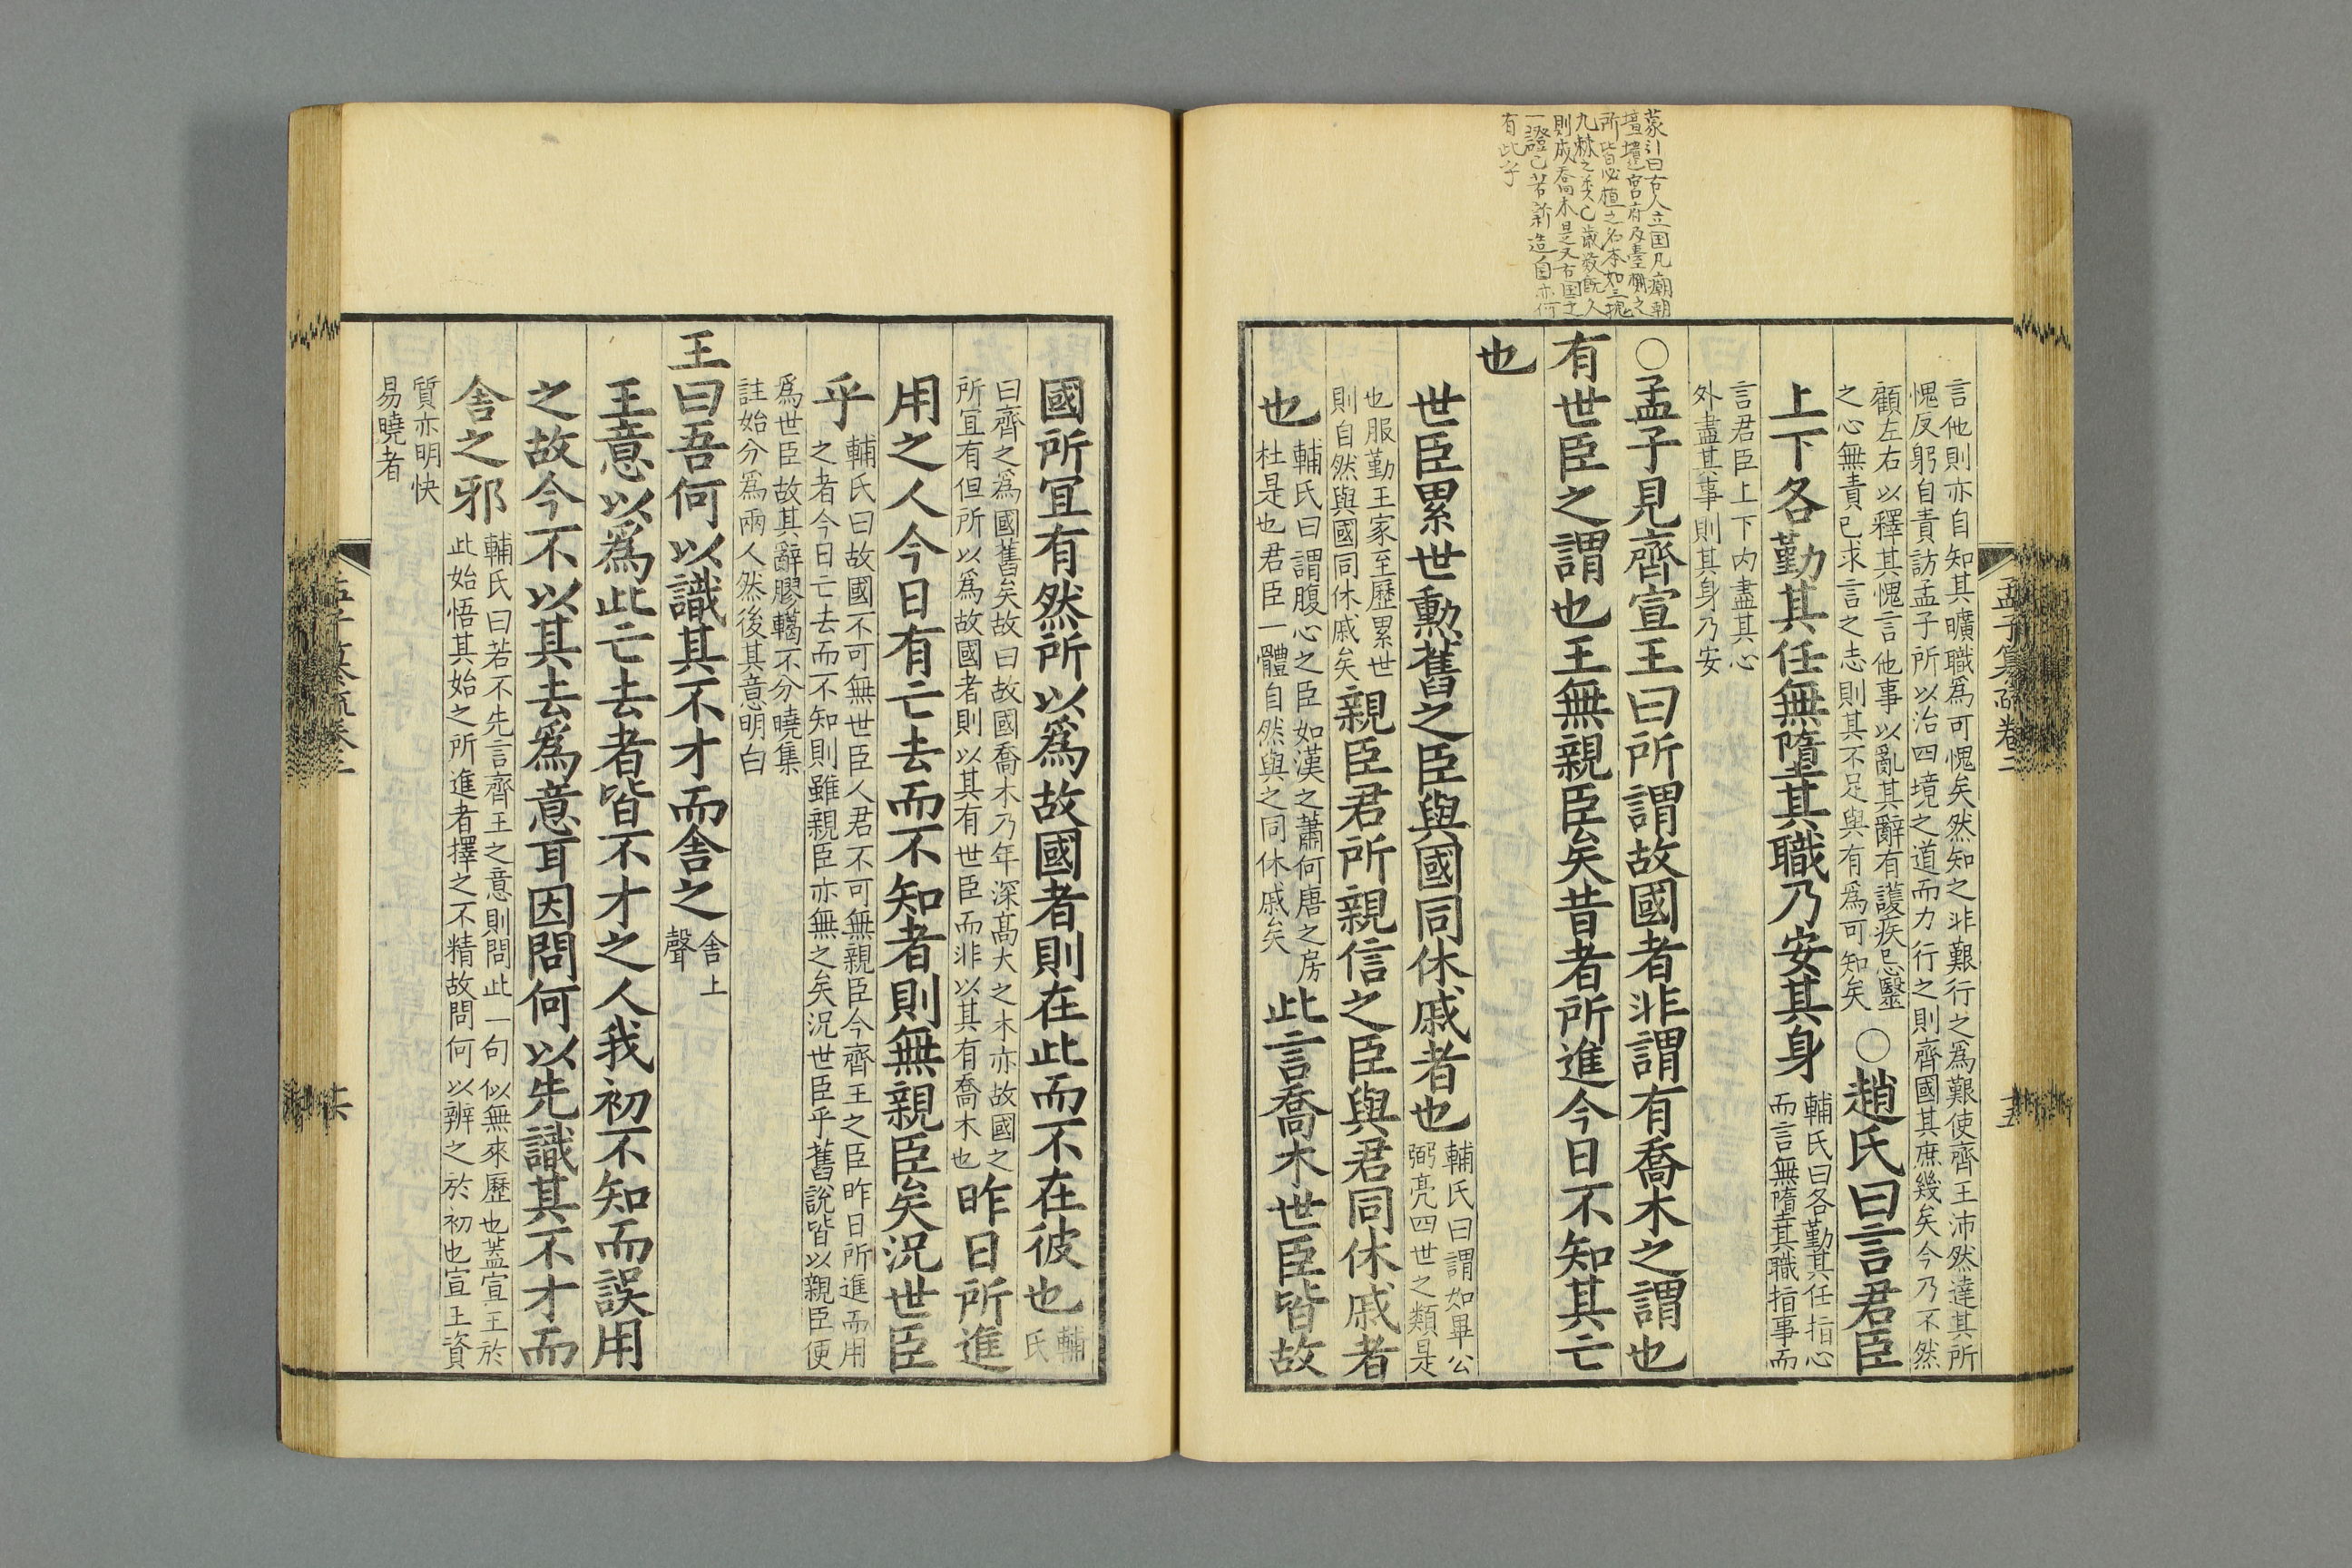 蒙引曰古人立国凡廟朝
壇壝宮府及臺榭之
所皆必植之名木如三槐
九棘之类已歳數百人
則成喬木是又古国之
一證也若新造自亦何
有此乎
孟子纂疏卷二
五
言他則亦自知其曠職為可愧矣然知之非艱行之為艱使齊王沛然達其所
愧反躬自責訪孟子所以治四境之道而力行之則齊國其庶幾矣今乃不然
顧左右以釋其愧言他事以亂其辭有護疾忌毉
之心無責已求言之志則其不足與有爲可知矣
○趙氏曰言君臣
上下各勤其任無墮其職乃安其身
輔氏曰各勤其任指心
而言無隋其職指事而
言君臣上下内盡其心
外盡其事則其身乃安
○孟子見齊宣王曰所謂故國者非謂有喬木之謂也
有世臣之謂也王無親臣矣昔者所進今日不知其亡
也
世臣累世勳舊之臣與國同休戚者也
輔氏曰謂如畢公
弼亮四世之類是
也服勤王家至歷累世
則自然與國同休戚矣
親臣君所親信之臣與君同休戚者
也
輔氏曰謂腹心之臣如漢之蕭何唐之房
杜是也君臣一體自然與之同休戚矣
此言喬木世臣皆故
國所宜有然所以爲故國者則在此而不在彼也
輔
氏
曰齊之爲國舊矣故曰故國喬木乃年深髙大之木亦故國之
所宜有但所以爲故國者則以其有世臣而非以其有喬木也
昨日所進
用之人今日有亡去而不知者則無親臣矣況世臣
乎
輔氏曰故國不可無世臣人君不可無親臣今齊王之臣昨日所進而用
之者今日亡去而不知則雖親臣亦無之矣況世臣乎舊說皆以親臣便
爲世臣故其辭膠轕不分曉集
註始分爲兩人然後其意明白
王曰吾何以識其不才而舍之
舍上
聲
王意以爲此亡去者皆不才之人我初不知而誤用
之故今不以其去爲意耳因問何以先識其不才而
舍之邪
輔氏曰若不先言齊王之意則問此一句似無來歷也蓋宣王於
此始悟其始之所進者擇之不精故問何以辨之於初也宣王資
質亦明快
易曉者
孟子纂疏卷二
六